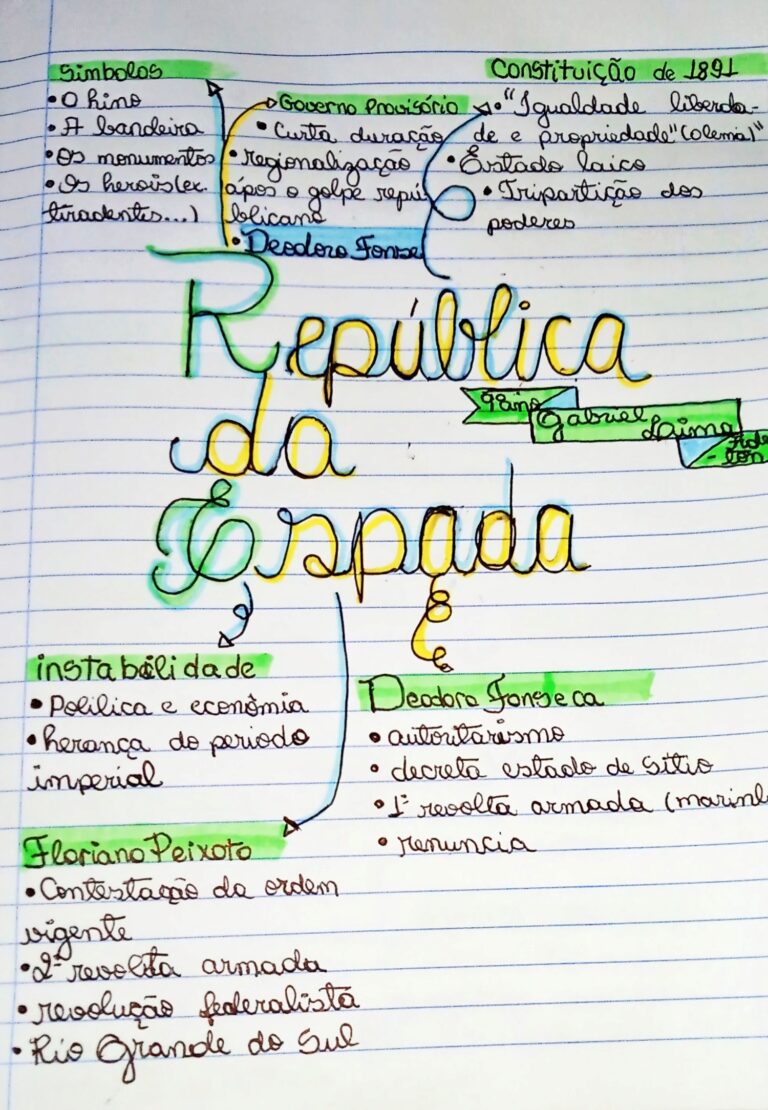 Simbolos
• O hino
• A bandeira
• Os monumentos
• Os herois(ex.
tiradentes...)
Governo Provisório
• Curta duração
• regionalização
ápos o golpe repú
blicano
• Deodoro Fonse
Constituição de 1891
• "Igualdade liberda-
de e propriedade"
• Estado laico
• Tripartição dos
poderes
República
da
Espada
9ºano
Gabriel Laima
instabilidade
• Polilica e econômia
• herança do periodo
imperial
Deodoro Fonseca
• autoritarismo
• decreta estado de sitio
• 1ª revolta armada (marinh
• renuncia
Floriano Peixoto
• Contestação da ordem
vigente
• 2ª revolta armada
• revolução federalista
• Rio Grande do Sul